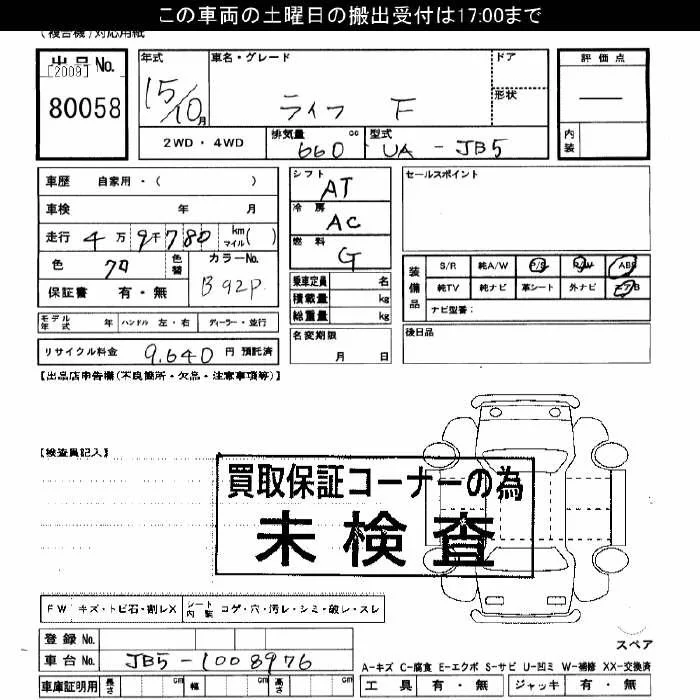 この車両の土曜日の搬出受付は17:00まで
(複合機)対応用紙
出品No.
[2009]
80058
年式
15/10月
車名・グレード
ライフ F
ドア
形状
2WD・4WD
排気量 cc
660
型式
UA - JB5
評価点
内装
車歴 自家用・( )
車検 年 月
走行 4万9千780 km マイル( )
色 クロ
色替
カラーNo.
B92P
保証書 有・無
シフト
AT
冷房
AC
燃料
G
乗車定員 名
積載量 kg
総重量 kg
名変期限
月 日
セールスポイント
装備品
S/R 純A/W P/S P/W ABS
純TV 純ナビ 革シート 外ナビ エアB
ナビ型番:
後日品
モデル年式 年 ハンドル 左・右 ディーラー・並行
リサイクル料金 9,640 円 預託済
【出品店申告欄(不良箇所・欠品・注意事項等)】
【検査員記入】
買取保証コーナーの為
未検査
FW キズ・トビ石・割レX シート内装 コゲ・穴・汚レ・シミ・破レ・スレ
登録No.
車台No. JB5-1008976
車庫証明用 長さ cm 幅 cm 高さ cm
スペア
A-キズ C-腐食 E-エクボ S-サビ U-凹ミ W-補修 XX-交換済
工具 有・無 ジャッキ 有・無